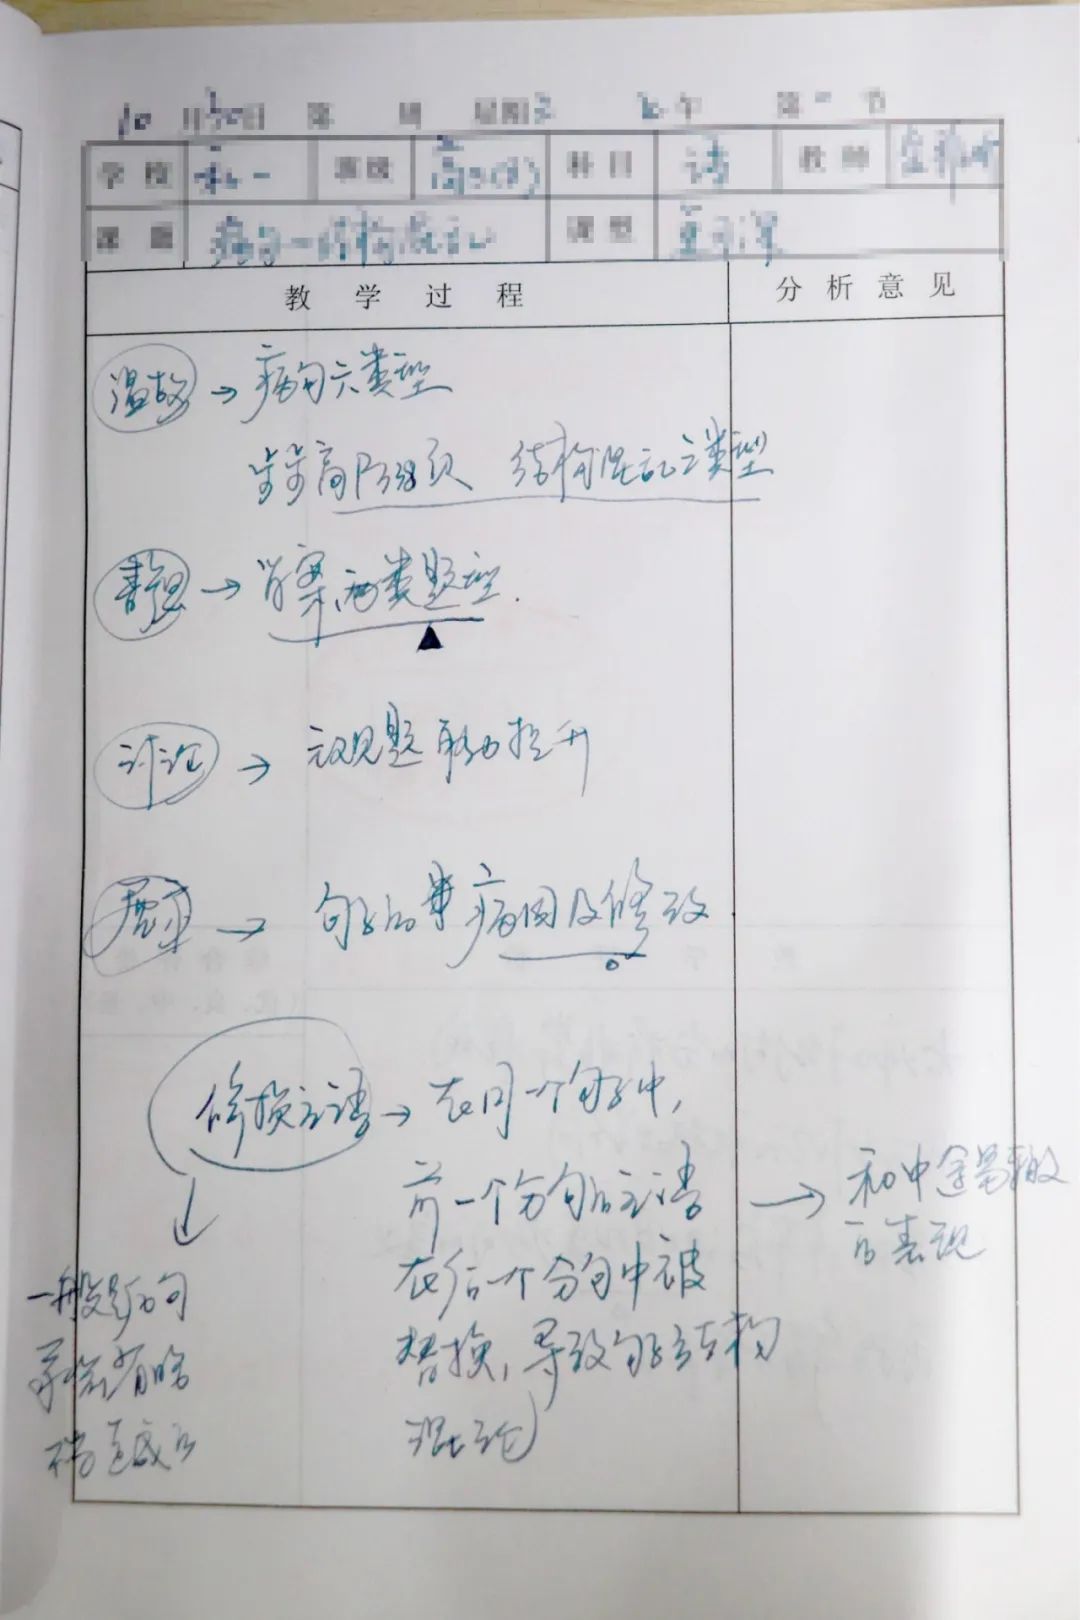 10月30日 第 周 星期 午 第 节
学校 班级 科目 语 教师
课题 病句一结构混乱 课型
教学过程 分析意见
温故 → 病句六类型
步步高P338页 结构混乱之类型
→ 学案,两类题型.
讨论 → 议题
展示 → 句子的 病因及修改
偷换主语 → 在同一个句子中,
前一个分句的主语 → 和中途易辙
的表现
在后一个分句中被
一般是后句
替换,导致句子结构
承前省略
混乱
不当造成的